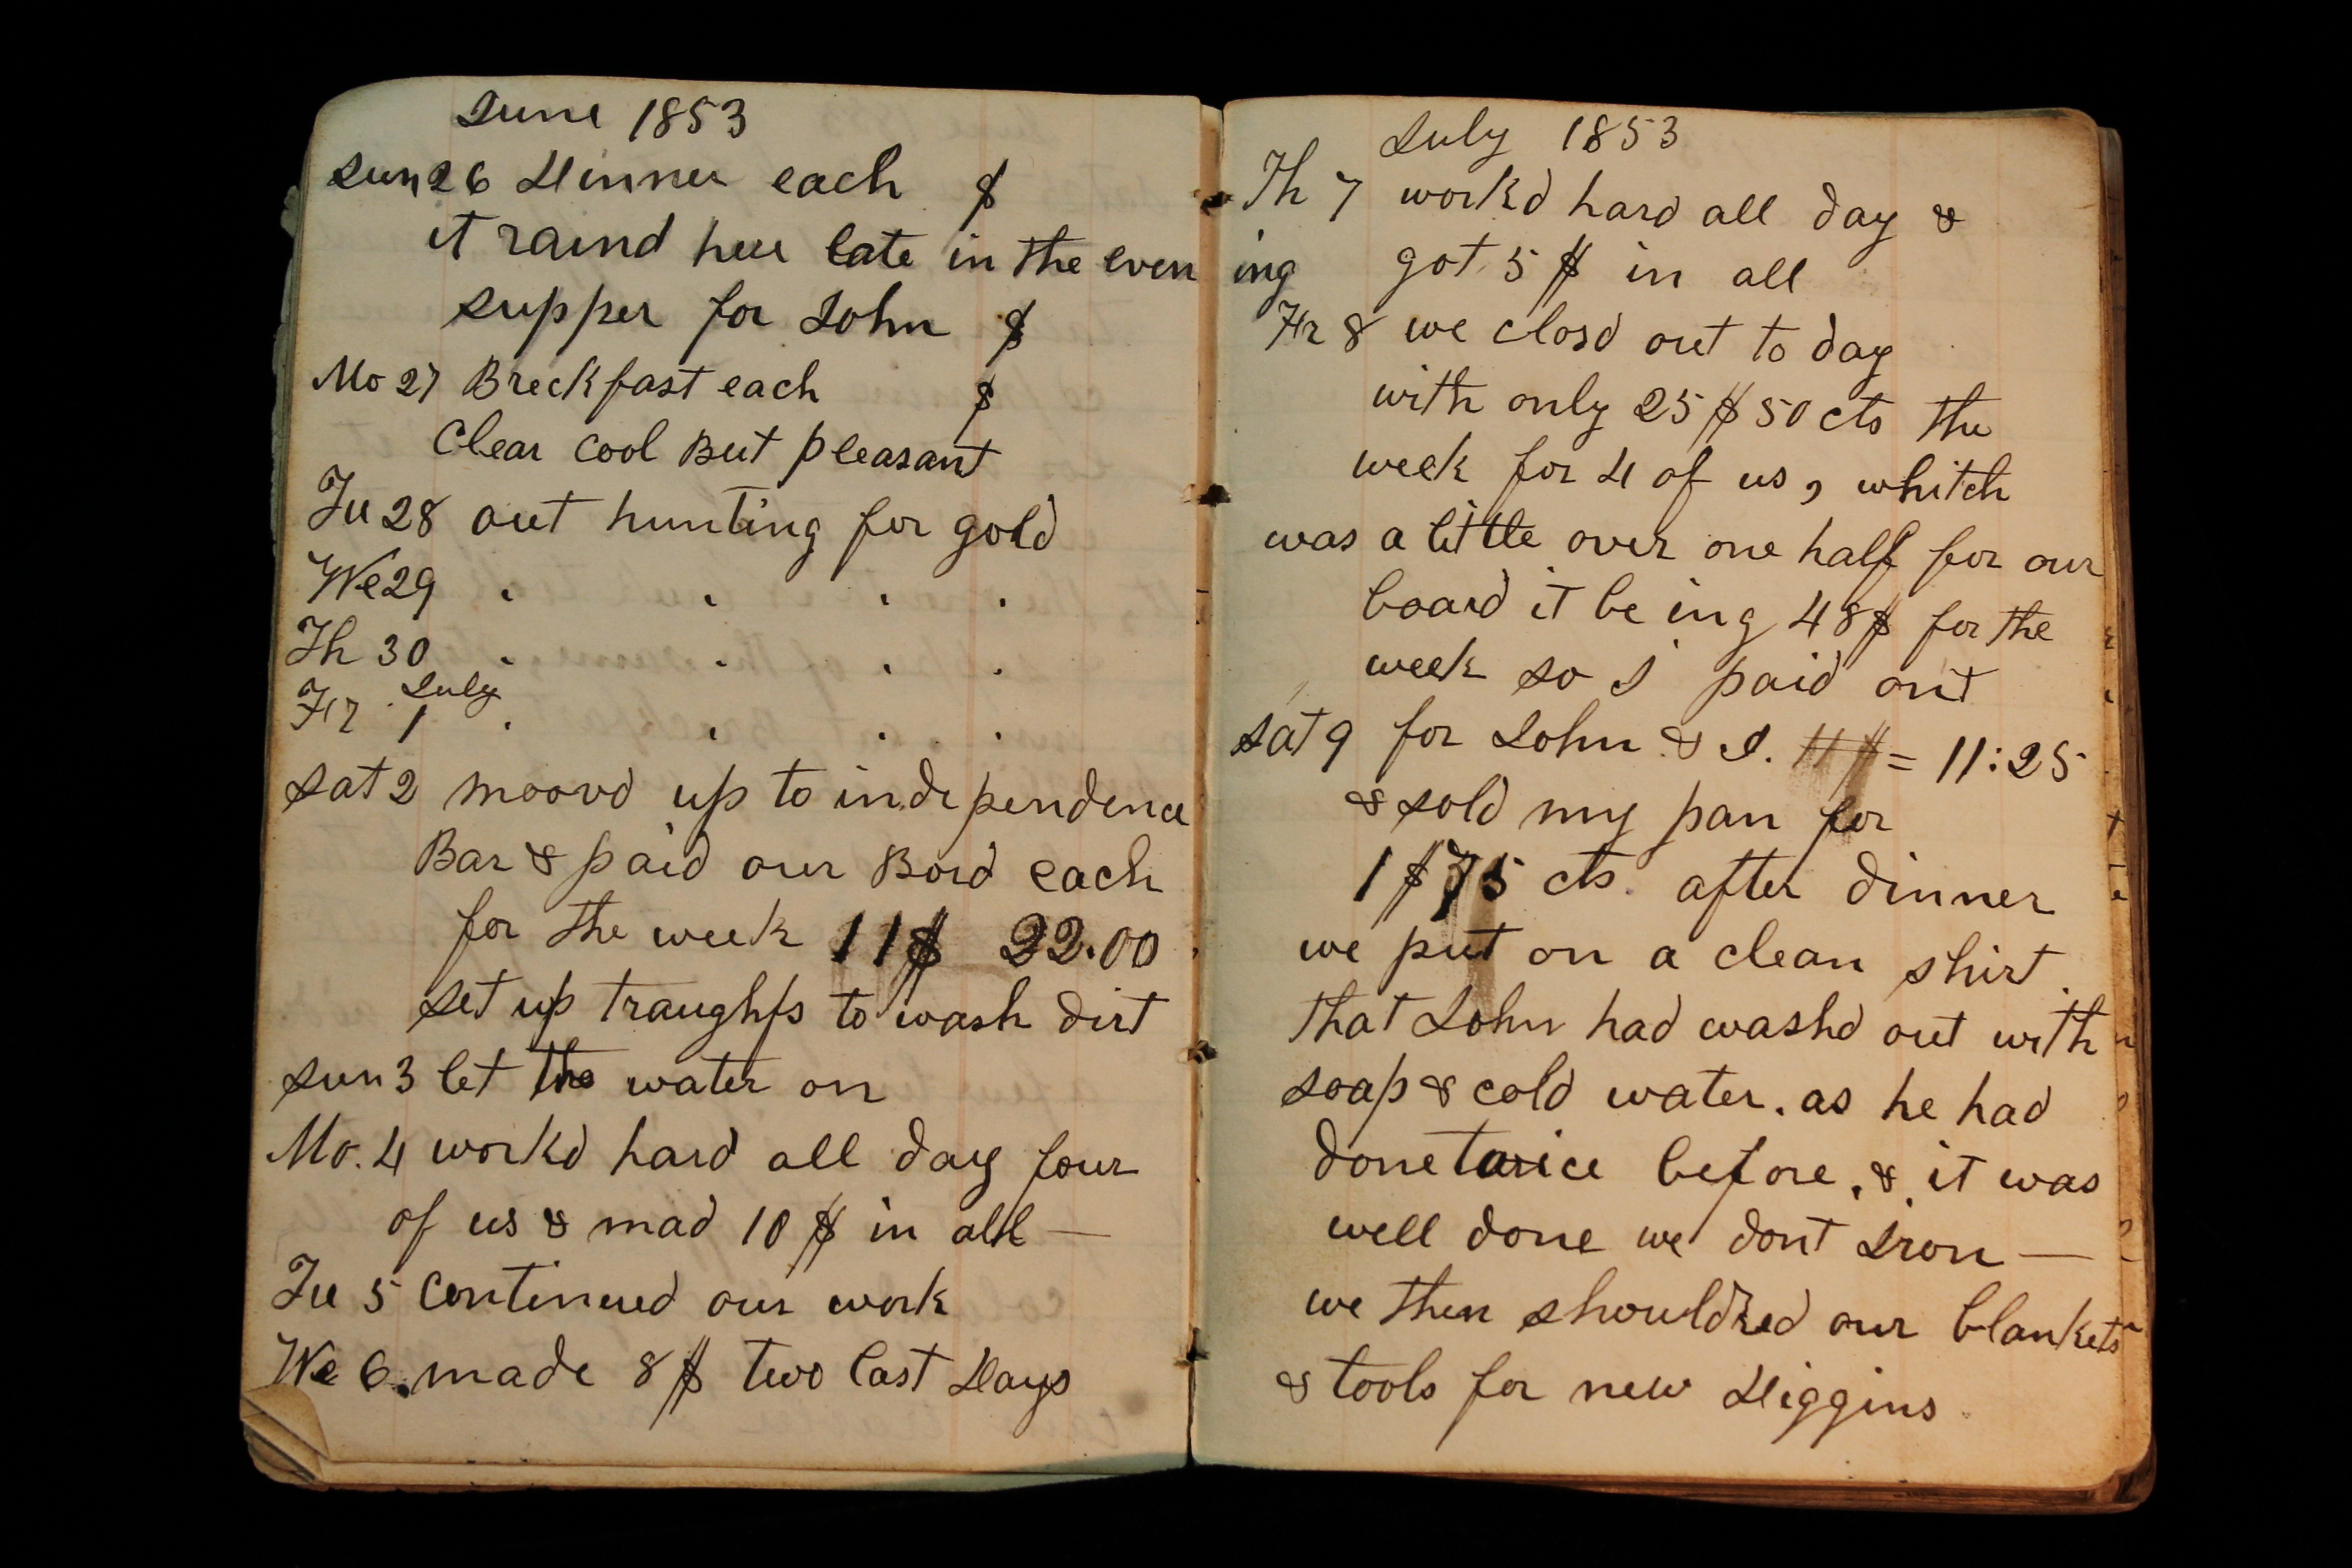 June 1853
Sun 26 Dinner each $
it raind here late in the even ing
supper for John $
Mo 27 Breckfast each $
Clear Cool But pleasant
Tu 28 out hunting for gold
We 29 " " " "
Th 30 " " " "
July
Fr 1 " " " "
Sat 2 moovd up to independence
Bar & paid our Bord each
for the week 11$ 22.00
set up traughfs to wash dirt
Sun 3 let the water on
Mo. 4 workd hard all day four
of us & mad 10 $ in all —
Tu 5 Continued our work
We 6. made 8 $ two last Days
July 1853
Th 7 workd hard all day &
got 5 $ in all
Fr 8 we closd out to day
with only 25 $ 50 cts the
week for 4 of us, whitch
was a little over one half for our
board it be ing 48$ for the
week so I paid out
Sat 9 for John & I. 11 $ = 11:25
& sold my pan for
1 $ 75 cts. after dinner
we put on a clean shirt.
that John had washd out with
soap & cold water. as he had
done twice before, &, it was
well done we dont Iron —
we then shouldred our blankets
& tools for new Diggins